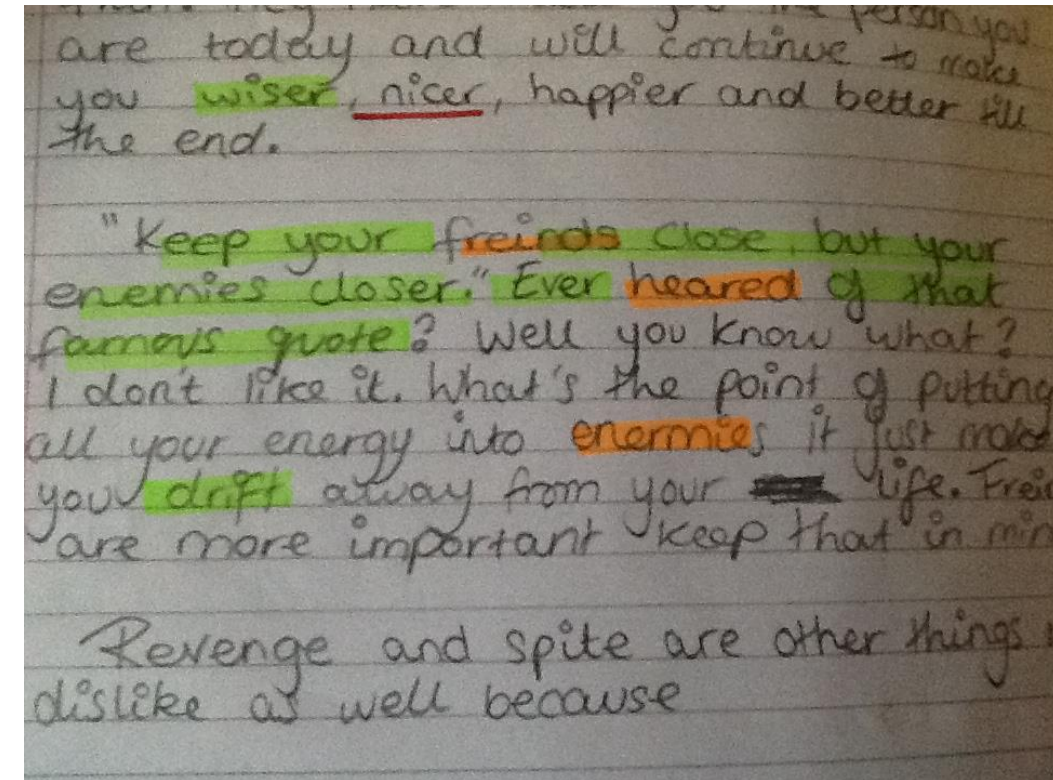 person you
are today and will continue to make
you wiser, nicer, happier and better till
the end.
"Keep your freinds close, but your
enemies closer." Ever heared of that
famous quote? Well you know what?
I don't like it. What's the point of putting
all your energy into enermies it just makes
you drift away from your life. Frei
are more important keep that in min
Revenge and spite are other things
dislike as well because